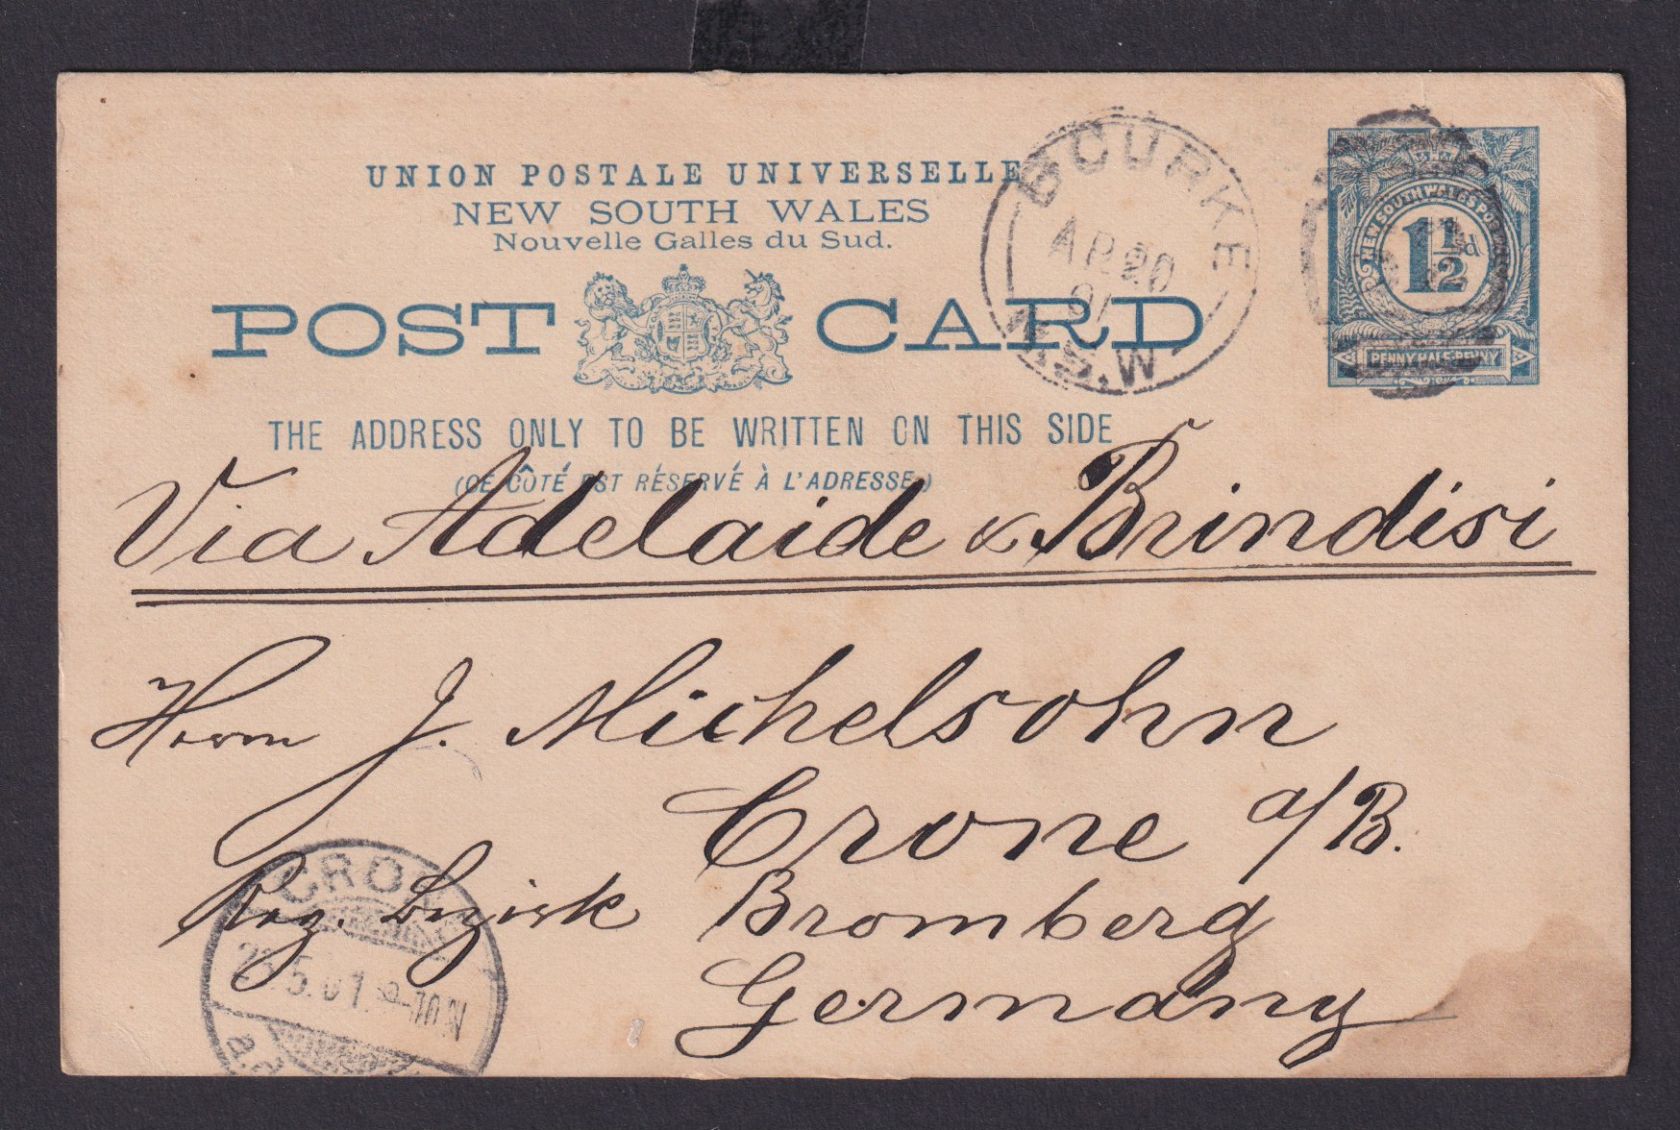 UNION POSTALE UNIVERSELLE
NEW SOUTH WALES
Nouvelle Galles du Sud.
POST CARD
THE ADDRESS ONLY TO BE WRITTEN ON THIS SIDE
(CE CÔTÉ EST RÉSERVÉ À L'ADRESSE.)
BOURKE
AP 20
01
N.S.W
NEW SOUTH WALES
1½d
PENNY HALF-PENNY
Via Adelaide & Brindisi
Herrn J. Michelsohn
Crone a/B.
Reg. Bezirk Bromberg
Germany
CRONE
5.01